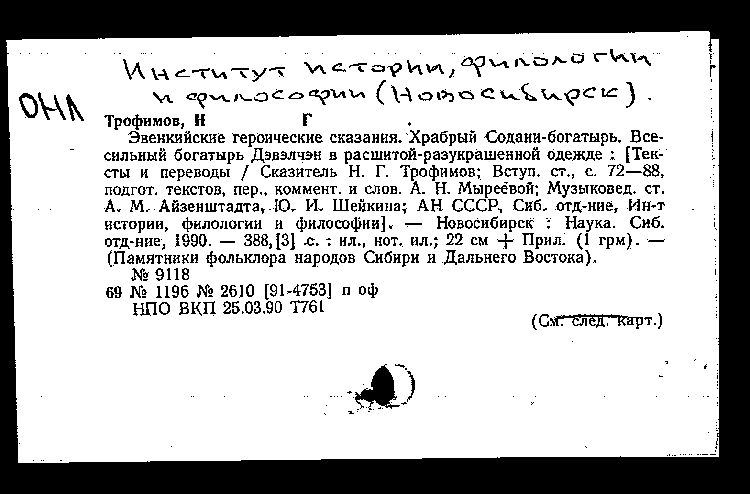 Институт истории, филологии
и философии (Новосибирск).
ОНЛ
Трофимов, Н Г .
Эвенкийские героические сказания. Храбрый Содани-богатырь. Все-
сильный богатырь Дэвэлчэн в расшитой-разукрашенной одежде : [Тек-
сты и переводы / Сказитель Н. Г. Трофимов; Вступ. ст., с. 72—88,
подгот. текстов, пер., коммент. и слов. А. Н. Мыреевой; Музыковед. ст.
А. М. Айзенштадта, Ю. И. Шейкина; АН СССР, Сиб. отд-ние, Ин-т
истории, филологии и философии]. — Новосибирск : Наука. Сиб.
отд-ние, 1990. — 388,[3] с. : ил., нот. ил.; 22 см + Прил. (1 грм). —
(Памятники фольклора народов Сибири и Дальнего Востока).
№ 9118
69 № 1196 № 2610 [91-4753] п оф
НПО ВКП 25.03.90 Т761
(См. след. карт.)